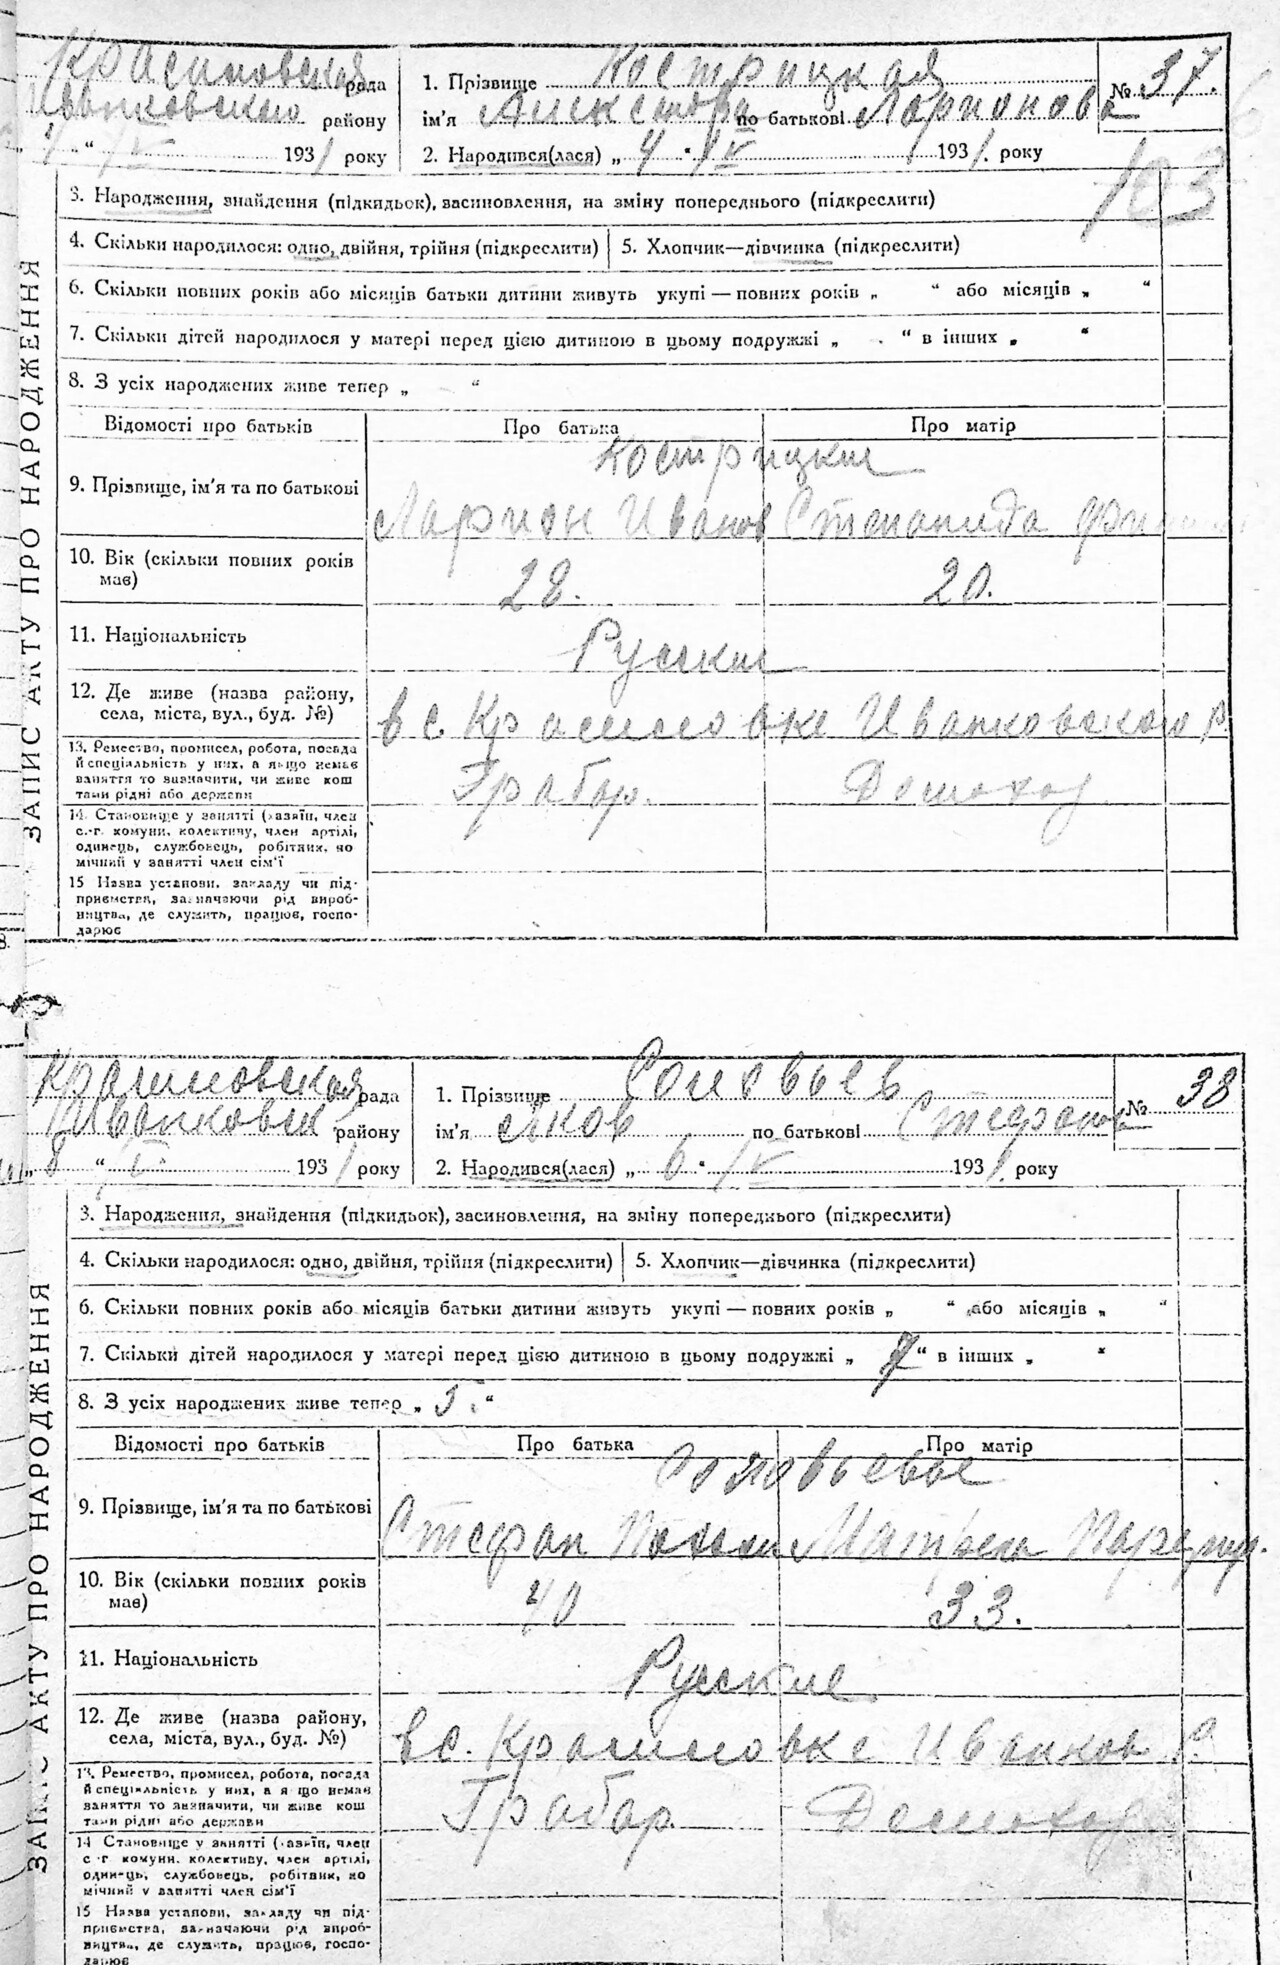 Красиловская рада
Иванковского району
4 " IV 1931 року
1. Прізвище Кострицкая
ім'я Александра по батькові Ларионова
№ 37.
2. Народився(лася) „ 4 " IV 1931. року
103
3. Народження, знайдення (підкидьок), засиновлення, на зміну попереднього (підкреслити)
4. Скільки народилося: одно, двійня, трійня (підкреслити) 5. Хлопчик—дівчинка (підкреслити)
6. Скільки повних років або місяців батьки дитини живуть укупі — повних років „ " або місяців „ "
7. Скільки дітей народилося у матері перед цією дитиною в цьому подружжі „ " в інших „ "
8. З усіх народжених живе тепер „ "
Відомості про батьків Про батька Про матір
Кострицкие
9. Прізвище, ім'я та по батькові
Ларион Иванов Степанида
10. Вік (скільки повних років має)
28. 20.
11. Національність Русские
12. Де живе (назва району, села, міста, вул., буд. №)
в с. Красиловке Иванковского р.
13. Ремество, промисел, робота, посада
й спеціальність у них, а якщо немає
заняття то зазначити, чи живе кош
тами рідні або держави
Грабар. Домоход
14. Становище у занятті (хазяїн, член
с.-г. комуни, колективу, член артілі,
одинець, службовець, робітник, по
мічний у занятті член сім'ї
15 Назва установи, закладу чи під-
приємства, зазначаючи рід вироб-
ництва, де служить, працює, госпо-
дарює
ЗАПИС АКТУ ПРО НАРОДЖЕННЯ
Красиловская рада
Иванковск району
8 " IV 1931 року
1. Прізвище Соловьев
ім'я Яков по батькові Стефанов
№ 38
2. Народився(лася) „ 6 " IV 1931. року
3. Народження, знайдення (підкидьок), засиновлення, на зміну попереднього (підкреслити)
4. Скільки народилося: одно, двійня, трійня (підкреслити) 5. Хлопчик—дівчинка (підкреслити)
6. Скільки повних років або місяців батьки дитини живуть укупі — повних років „ " або місяців „ "
7. Скільки дітей народилося у матері перед цією дитиною в цьому подружжі „ 7 " в інших „ "
8. З усіх народжених живе тепер „ 5. "
Відомості про батьків Про батька Про матір
Соловьевы
9. Прізвище, ім'я та по батькові
Стефан
10. Вік (скільки повних років має)
40 33.
11. Національність Русские
12. Де живе (назва району, села, міста, вул., буд. №)
в с. Красиловке Иванков р.
13. Ремество, промисел, робота, посада
й спеціяльність у них, а якщо немає
заняття то зазначити, чи живе кош
тами рідні або держави
Грабар. Домоход
14 Становище у занятті (хазяїн, член
с.-г комуни, колективу, член артілі,
одинець, службовець, робітник, по
мічний у занятті член сім'ї
15 Назва установи, закладу чи під-
приємства, зазначаючи рід вироб-
ництва, де служить, працює, госпо-
дарює
ЗАПИС АКТУ ПРО НАРОДЖЕННЯ